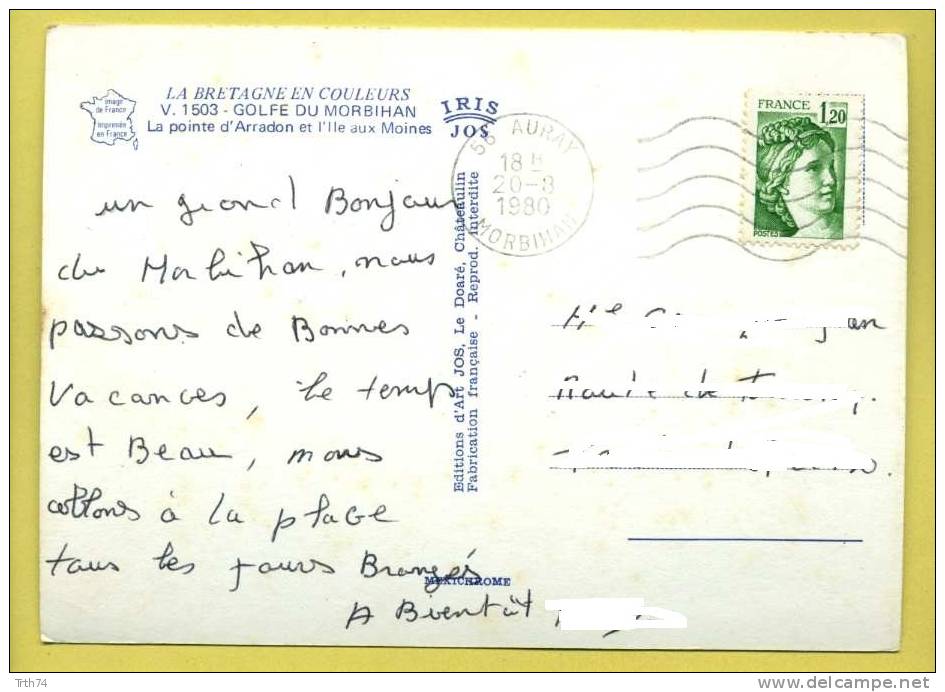 LA BRETAGNE EN COULEURS
V. 1503 - GOLFE DU MORBIHAN
La pointe d'Arradon et l'Ile aux Moines
image
de France
Imprimée
en France
IRIS
JOS
56 AURAY
18 H
20-8
1980
MORBIHAN
FRANCE 1,20
POSTES
un grand Bonjour
du Morbihan, nous
passons de Bonnes
Vacances, le temps
est Beau, nous
allons à la plage
tous les jours Bronzés
A Bientôt
Editions d'Art JOS, Le Doaré, Châteaulin
Fabrication française - Reprod. Interdite
MEXICHROME
Route de
Trth74
www.delcampe.net